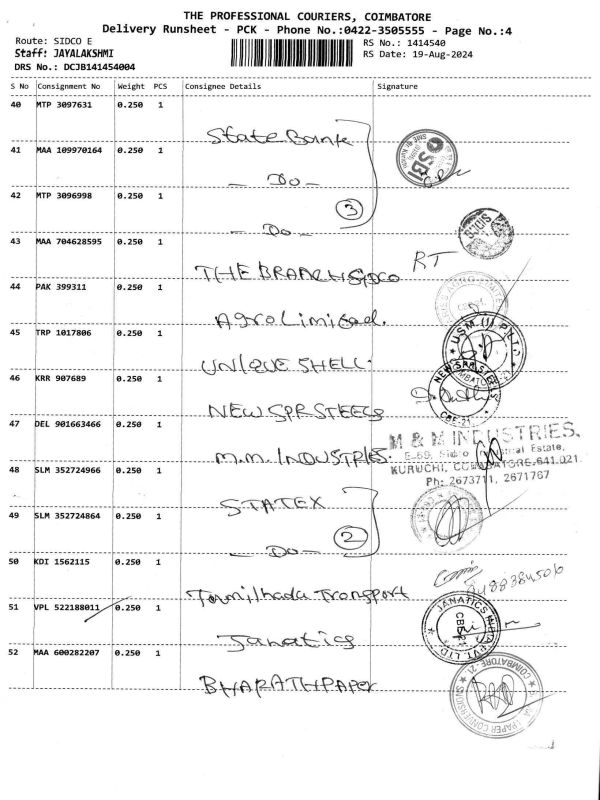 THE PROFESSIONAL COURIERS, COIMBATORE
Delivery Runsheet - PCK - Phone No.:0422-3505555 - Page No.:4
Route: SIDCO E
Staff: JAYALAKSHMI
DRS No.: DCJB141454004
RS No.: 1414540
RS Date: 19-Aug-2024
S No Consignment No Weight PCS Consignee Details Signature
40 MTP 3097631 0.250 1
State Bank
SBI
41 MAA 109970164 0.250 1
- Do -
42 MTP 3096998 0.250 1
3
- Do -
SIDCO
43 MAA 704628595 0.250 1
RT
THE BRANCH SIDCO
44 PAK 399311 0.250 1
Agro Limited.
45 TRP 1017806 0.250 1
U.S.M. (I) P. LTD
UNIQUE SHELL.
46 KRR 907689 0.250 1
NEW SPR STEELS
CBE-21
NEW SPR STEELS
47 DEL 901663466 0.250 1
M & M INDUSTRIES.
E-69, Sidco Estate,
KURUCHI, COIMBATORE-641 021
Ph: 2673711, 2671767
M.M. INDUSTRIES.
48 SLM 352724966 0.250 1
STATEX
49 SLM 352724864 0.250 1
2
- Do -
50 KDI 1562115 0.250 1
Tamilnadu Transport
51 VPL 522188011 0.250 1
JANATICS INDIA PVT. LTD
Janatics
52 MAA 600282207 0.250 1
COIMBATORE - 21
PAPER CONVERSIONS
BHARATH PAPER